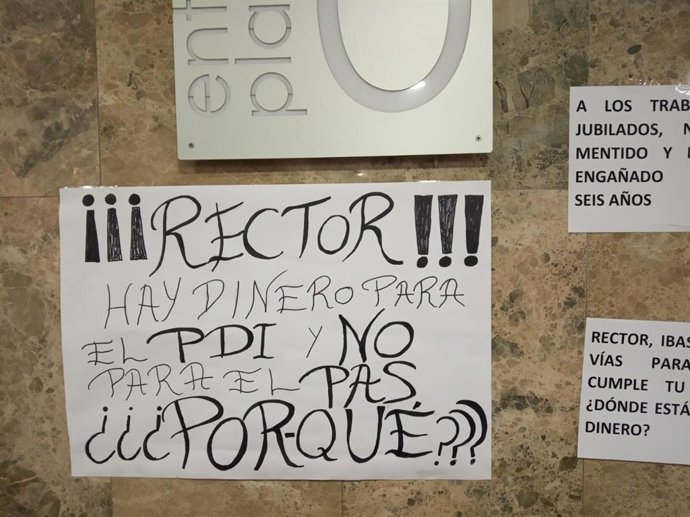 ent
pla
¡¡¡RECTOR!!!
HAY DINERO PARA
EL PDI Y NO
PARA EL PAS
¿¿¿POR-QUÉ???
A LOS TRAB
JUBILADOS, N
MENTIDO Y
ENGAÑADO
SEIS AÑOS
RECTOR, IBAS
VÍAS PARA
CUMPLE TU
¿DÓNDE ESTÁ
DINERO?